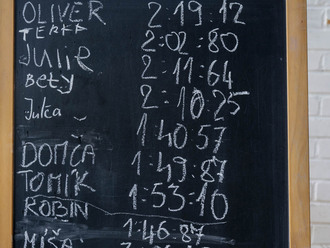 OLIVER 2:19:12
TERKA 2:02:80
Julie 2:11:64
Bety 2:10:25
Jutca 1:40 57
DOMČA 1:49:87
TOMIK 1:53:10
ROBIN 1:46:87
MÍŠA